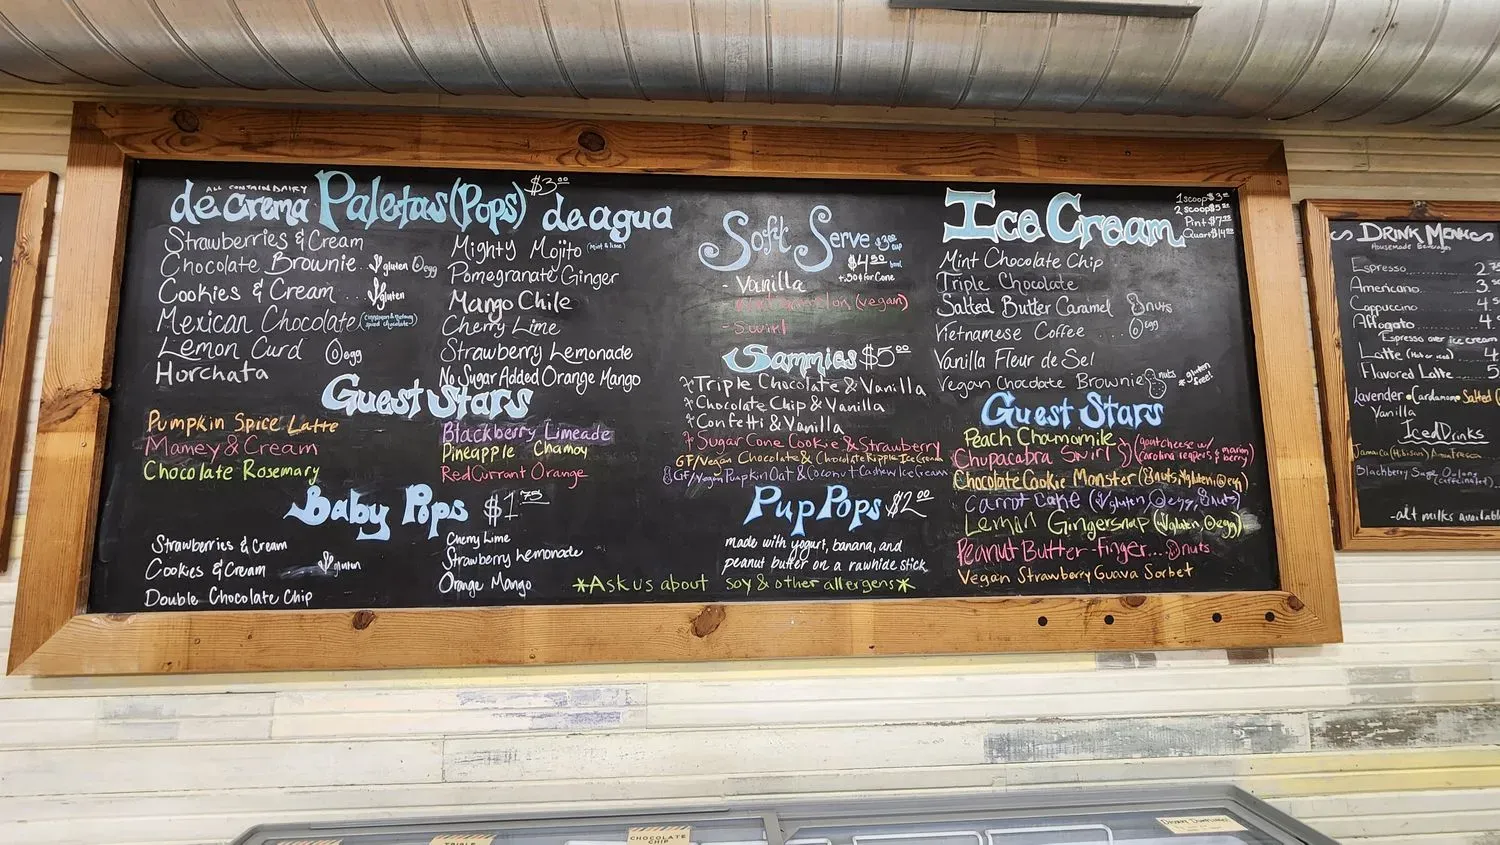 ALL CONTAIN DAIRY
de Crema Paletas (Pops) $3.00 de agua
Strawberries & Cream
Chocolate Brownie gluten egg
Cookies & Cream ... gluten
Mexican Chocolate (cinnamon & nutmeg spiced chocolate)
Lemon Curd egg
Horchata
Mighty Mojito (mint & lime)
Pomegranate Ginger
Mango Chile
Cherry Lime
Strawberry Lemonade
No Sugar Added Orange Mango
Guest Stars
Pumpkin Spice Latte
Mamey & Cream
Chocolate Rosemary
Blackberry Limeade
Pineapple Chamoy
Red Currant Orange
Baby Pops $1.75
Strawberries & Cream
Cookies & Cream gluten
Double Chocolate Chip
Cherry Lime
Strawberry Lemonade
Orange Mango
Soft Serve
cup
$4.50 bowl
+.50¢ for Cone
- Vanilla
(vegan)
- Swirl
Sammies $5.00
Triple Chocolate & Vanilla
Chocolate Chip & Vanilla
Confetti & Vanilla
Sugar Cone Cookie & Strawberry
GF/Vegan Chocolate & Chocolate Ripple Ice Cream
GF/Vegan Pumpkin Oat & Coconut Cashew Ice Cream
Pup Pops $2.00
made with yogurt, banana, and
peanut butter on a rawhide stick
*Ask us about soy & other allergens*
Ice Cream
1 scoop $3
2 scoop $5
Pint $7
Quart $14
Mint Chocolate Chip
Triple Chocolate
Salted Butter Caramel nuts
Vietnamese Coffee ... egg
Vanilla Fleur de Sel
Vegan Chocolate Brownie nuts *gluten free!
Guest Stars
Peach Chamomile
Chupacabra Swirl (goat cheese w/ carolina reapers & marion berry)
Chocolate Cookie Monster (nuts, gluten, egg)
Carrot Cake (gluten, egg, nuts)
Lemon Gingersnap (gluten, egg)
Peanut Butter Finger... nuts
Vegan Strawberry Guava Sorbet
DRINK MENU
Housemade Beverages
Espresso 2
Americano 3
Cappuccino 4
Affogato 4
Espresso over ice cream
Latte (Hot or iced) 4
Flavored Latte 5
Lavender • Cardamom • Salted
Vanilla
Iced Drinks
Jamaica (Hibiscus)
Blackberry Sage Oolong
(caffeinated)
-alt milks available
CHOCOLATE
CHIP